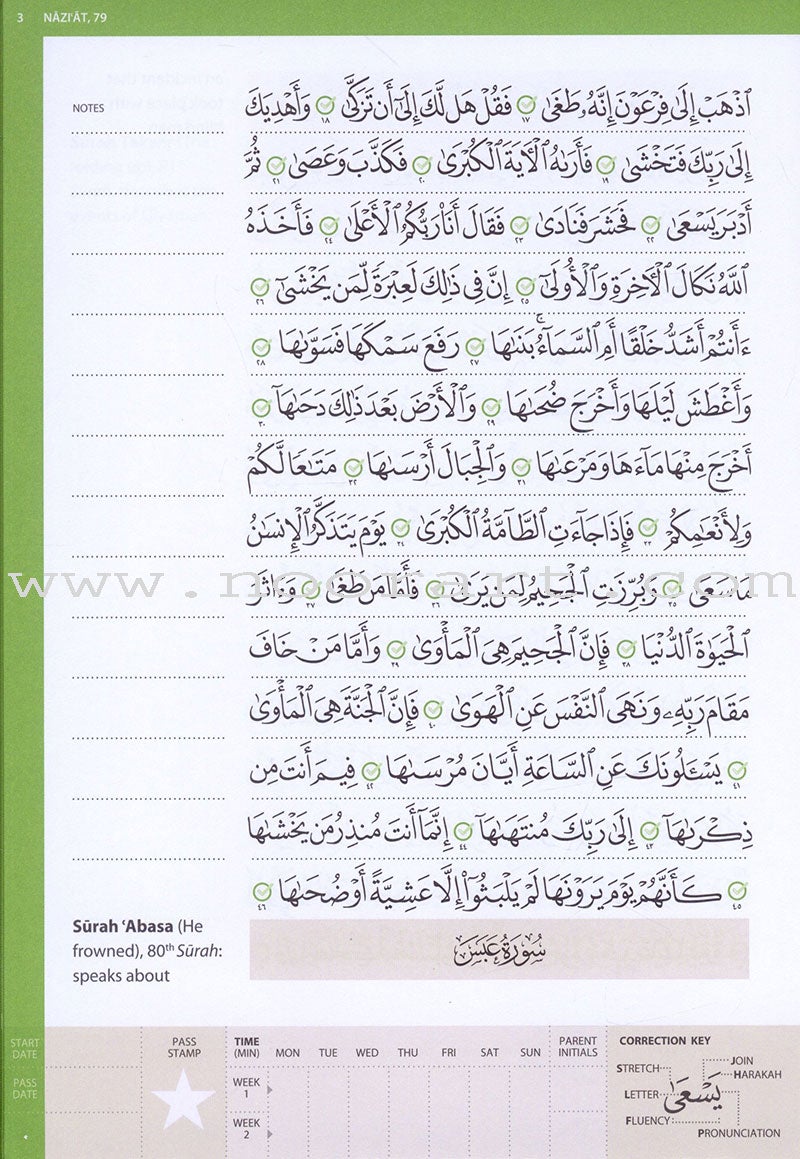 3 NĀZIʿĀT, 79
NOTES
ٱذْهَبْ إِلَىٰ فِرْعَوْنَ إِنَّهُۥ طَغَىٰ ١٧ فَقُلْ هَل لَّكَ إِلَىٰٓ أَن تَزَكَّىٰ ١٨ وَأَهْدِيَكَ
إِلَىٰ رَبِّكَ فَتَخْشَىٰ ١٩ فَأَرَىٰهُ ٱلْأٓيَةَ ٱلْكُبْرَىٰ ٢٠ فَكَذَّبَ وَعَصَىٰ ٢١ ثُمَّ
أَدْبَرَ يَسْعَىٰ ٢٢ فَحَشَرَ فَنَادَىٰ ٢٣ فَقَالَ أَنَا۠ رَبُّكُمُ ٱلْأَعْلَىٰ ٢٤ فَأَخَذَهُ
ٱللَّهُ نَكَالَ ٱلْأٓخِرَةِ وَٱلْأُولَىٰٓ ٢٥ إِنَّ فِى ذَٰلِكَ لَعِبْرَةً لِّمَن يَخْشَىٰٓ ٢٦
ءَأَنتُمْ أَشَدُّ خَلْقًا أَمِ ٱلسَّمَآءُ ۚ بَنَىٰهَا ٢٧ رَفَعَ سَمْكَهَا فَسَوَّىٰهَا ٢٨
وَأَغْطَشَ لَيْلَهَا وَأَخْرَجَ ضُحَىٰهَا ٢٩ وَٱلْأَرْضَ بَعْدَ ذَٰلِكَ دَحَىٰهَآ ٣٠
أَخْرَجَ مِنْهَا مَآءَهَا وَمَرْعَىٰهَا ٣١ وَٱلْجِبَالَ أَرْسَىٰهَا ٣٢ مَتَـٰعًا لَّكُمْ
وَلِأَنْعَـٰمِكُمْ ٣٣ فَإِذَا جَآءَتِ ٱلطَّآمَّةُ ٱلْكُبْرَىٰ ٣٤ يَوْمَ يَتَذَكَّرُ ٱلْإِنسَـٰنُ
مَا سَعَىٰ ٣٥ وَبُرِّزَتِ ٱلْجَحِيمُ لِمَن يَرَىٰ ٣٦ فَأَمَّا مَن طَغَىٰ ٣٧ وَءَاثَرَ
ٱلْحَيَوٰةَ ٱلدُّنْيَا ٣٨ فَإِنَّ ٱلْجَحِيمَ هِىَ ٱلْمَأْوَىٰ ٣٩ وَأَمَّا مَنْ خَافَ
مَقَامَ رَبِّهِۦ وَنَهَى ٱلنَّفْسَ عَنِ ٱلْهَوَىٰ ٤٠ فَإِنَّ ٱلْجَنَّةَ هِىَ ٱلْمَأْوَىٰ
٤١ يَسْـَٔلُونَكَ عَنِ ٱلسَّاعَةِ أَيَّانَ مُرْسَىٰهَا ٤٢ فِيمَ أَنتَ مِن
ذِكْرَىٰهَآ ٤٣ إِلَىٰ رَبِّكَ مُنتَهَىٰهَآ ٤٤ إِنَّمَآ أَنتَ مُنذِرُ مَن يَخْشَىٰهَا
٤٥ كَأَنَّهُمْ يَوْمَ يَرَوْنَهَا لَمْ يَلْبَثُوٓا۟ إِلَّا عَشِيَّةً أَوْ ضُحَىٰهَا ٤٦
www.noorart.com
سُورَةُ عَبَسَ
Sūrah ʿAbasa (He
frowned), 80th Sūrah:
speaks about
START
DATE
PASS
DATE
PASS
STAMP
TIME
(MIN) MON TUE WED THU FRI SAT SUN
WEEK
1
WEEK
2
PARENT
INITIALS
CORRECTION KEY
STRETCH
LETTER
FLUENCY
JOIN
HARAKAH
PRONUNCIATION
يَسْعَىٰ